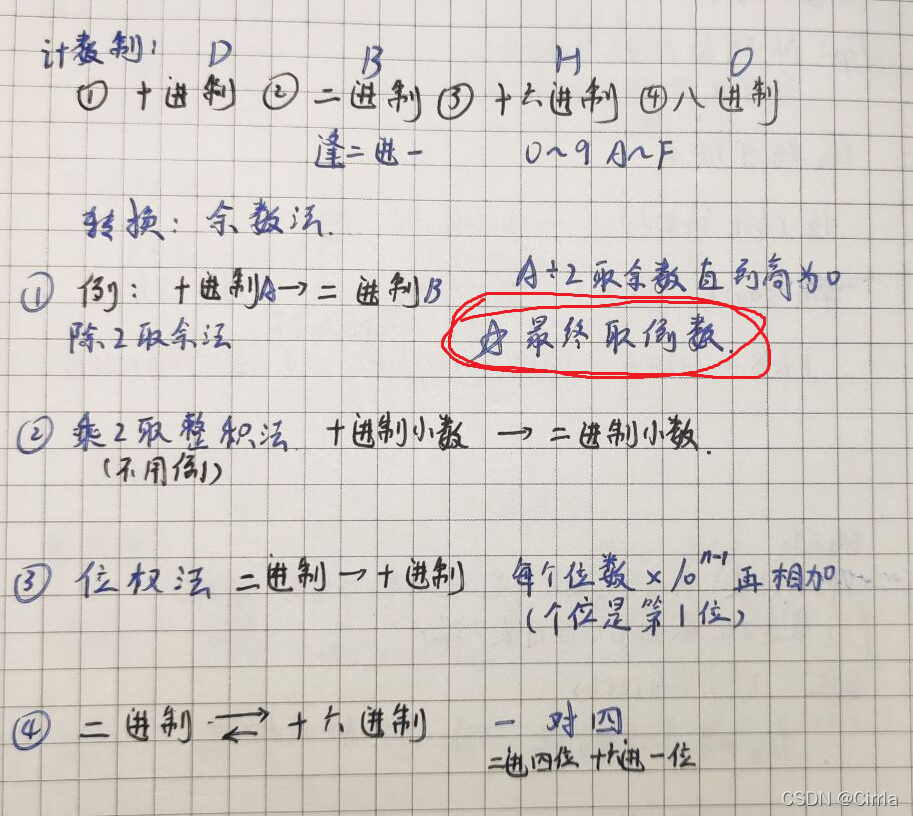 计数制：
D B H O
① 十进制 ② 二进制 ③ 十六进制 ④ 八进制
逢二进一 0~9 A~F
转换：余数法.
① 例：十进制A→二进制B A÷2取余数直到商为0
除2取余法 ☆ 最终取倒数.
② 乘2取整积法 十进制小数 → 二进制小数.
(不用倒)
③ 位权法 二进制→十进制 每个位数×10ⁿ⁻¹再相加
(个位是第1位)
④ 二进制 ⇄ 十六进制 一对四
二进四位 十六进一位
CSDN @Cirrla